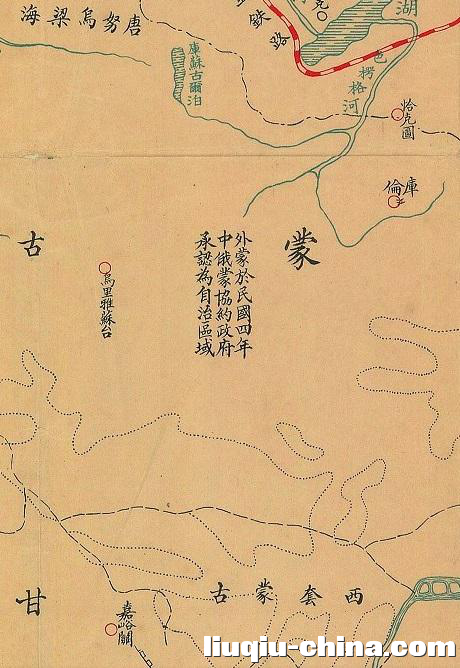 唐努烏梁海
鉄路
克
湖
庫蘇古爾泊
色楞格河
恰克圖
庫倫
蒙古
外蒙於民國四年
中俄蒙協約政府
承認為自治區域
烏里雅蘇台
西套蒙古
甘
嘉峪關
liuqiu-china.com